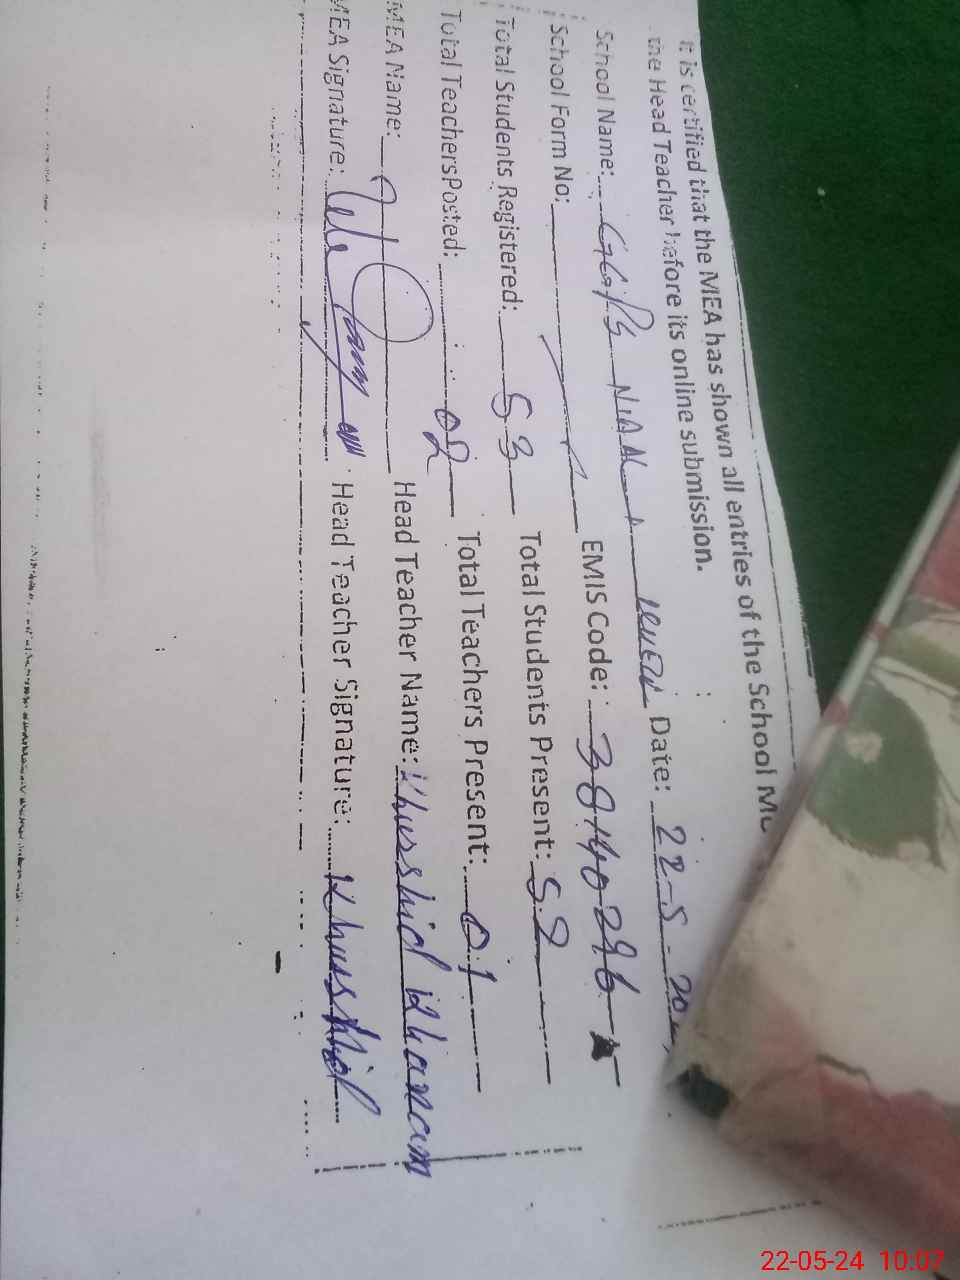 It is certified that the MEA has shown all entries of the School Mo
the Head Teacher before its online submission.
School Name: GG/PS Date: 22-5-20
School Form No: EMIS Code: 38140296
Total Students Registered: 53 Total Students Present: 52
Total TeachersPosted: 02 Total Teachers Present: 01
MEA Name: Head Teacher Name: Khurshid Khanam
MEA Signature: Head Teacher Signature: Khurshid
22-05-24 10:07